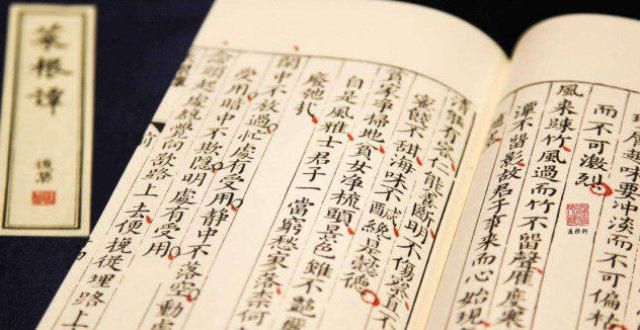 菜根譚
味要冲淡而不可偏枯
而不可激烈
風來疎竹風過而竹不留聲雁度寒
潭不留影故君子事來而心始現
清能有容仁能善斷明不傷察
蜜餞不甜海味不鹹纔是懿德
貧家淨掃地貧女淨梳頭景色雖不艷
自是風雅士君子一當窮愁寥落奈何
廢弛
閒中不放過忙處有受用靜中不落空動處
受用暗中不欺隱明處有受用
念頭起處纔覺向欲路上去便挽從理路上